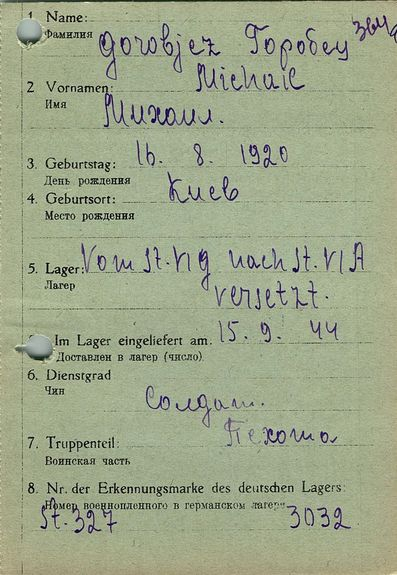 1. Name:
Фамилия
Gorobjez Горобец
2 Vornamen:
Michail
Имя
Михаил.
3. Geburtstag: 16. 8. 1920
День рождения
4. Geburtsort: Киев
Место рождения
5. Lager: Vom St. VI G nach St. VI A
Лагер
versetzt.
Im Lager eingeliefert am: 15. 9. 44
Доставлен в лагер (число)
6. Dienstgrad
Чин
Солдат.
7. Truppenteil: Пехота
Воинская часть
8. Nr. der Erkennungsmarke des deutschen Lagers:
Номер военнопленного в германском лагере
St. 327 3032